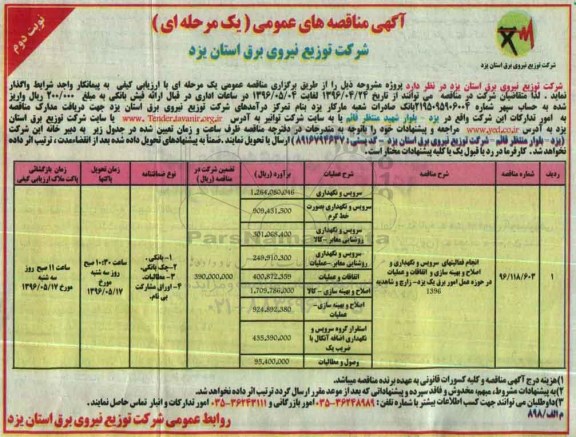 آگهی مناقصه های عمومی ( یک مرحله ای )
نوبت دوم
شرکت توزیع نیروی برق استان یزد
شرکت توزیع نیروی برق استان یزد
شرکت توزیع نیروی برق استان یزد در نظر دارد پروژه مشروحه ذیل را از طریق برگزاری مناقصه عمومی یک مرحله ای با ارزیابی کیفی به پیمانکار واجد شرایط واگذار
نماید. لذا متقاضیان شرکت در مناقصه می توانند از تاریخ ۱۳۹۶/۰۴/۲۴ لغایت ۱۳۹۶/۰۵/۰۴ در ساعات اداری در قبال ارائه فیش بانکی به مبلغ ۲۰۰/۰۰۰ ریال واریز
شده به حساب سپهر شماره بانک صادرات شعبه مارکار یزد بنام تمرکز درآمدهای شرکت توزیع نیروی برق استان یزد جهت دریافت مدارک مناقصه
به امور تدارکات این شرکت واقع در یزد - بلوار شهید منتظر قائم یا به سایت شرکت توانیر به آدرس www.Tender.tavanir.org.ir یا سایت شرکت توزیع نیروی برق استان
یزد به آدرس مراجعه و پیشنهادات خود را باتوجه به مندرجات در دفترچه مناقصه ظرف ساعت و زمان تعیین شده در جدول زیر به دبیر خانه این شرکت
(یزد - بلوار منتظر قائم - شرکت توزیع نیروی برق استان یزد - کد پستی ۸۹۱۶۷۹۴۶۳۷) ارسال یا تحویل نمایند. ضمناً به پیشنهادهای تحویل داده شده بعد از انقضاء مدت، ترتیب اثر داده
نخواهد شد. کارفرما در رد یا قبول یک یا کلیه پیشنهادات مختار است.
ردیف
شماره مناقصه
شرح مناقصه
شرح عملیات
برآورد (ریال)
تضمین شرکت در مناقصه (ریال)
نوع ضمانتنامه
زمان تحویل پاکتها
زمان بازگشائی پاکت ملاک ارزیابی کیفی
۱
۹۶/۱۱۸/۶۰۳
انجام فعالیتهای سرویس و نگهداری و
اصلاح و بهینه سازی و اتفاقات و عملیات
در حوزه عمل امور برق یک یزد- زارچ و شاهدیه
1396
سرویس و نگهداری
1,264,080,046
سرویس و نگهداری بصورت خط گرم
909,451,500
سرویس و نگهداری روشنایی معابر- کالا
301,008,400
سرویس و نگهداری روشنایی معابر- عملیات
249,910,300
اتفاقات و عملیات
400,872,359
اصلاح و بهینه سازی - کالا
1,709,786,000
اصلاح و بهینه سازی - عملیات
524,892,380
استقرار گروه سرویس و نگهداری اضافه آنکال با ضریب یک
455,390,000
وصول و مطالبات
95,400,000
390,000,000
۱- بانکی،
۲-چک بانکی،
۳- مطالبات،
۴- اوراق مشارکت بی نام.
ساعت ۱۰:۳۰ صبح
روز سه شنبه
مورخ
۱۳۹۶/۰۵/۱۷
ساعت ۱۱ صبح روز
سه شنبه
مورخ ۱۳۹۶/۰۵/۱۷
ParsNamadData
۰۲۱-۸۸۳۴۹۶۷۰-۵
۱)هزینه درج آگهی مناقصه و کلیه کسورات قانونی به عهده برنده مناقصه میباشد.
۲)به پیشنهادات مشروط، مبهم، مخدوش و فاقد سپرده و پیشنهاداتی که بعد از موعد مقرر ارسال گردد ترتیب اثر داده نخواهد شد.
۳)داوطلبان می توانند جهت کسب اطلاعات بیشتر با شماره تلفن : ۰۳۵-۳۶۲۴۸۹۸۹ امور بازرگانی و ۰۳۵-۳۶۲۴۳۱۱۱ امور تدارکات و انبار تماس حاصل نمایند.
م الف/۸۹۸
روابط عمومی شرکت توزیع نیروی برق استان یزد